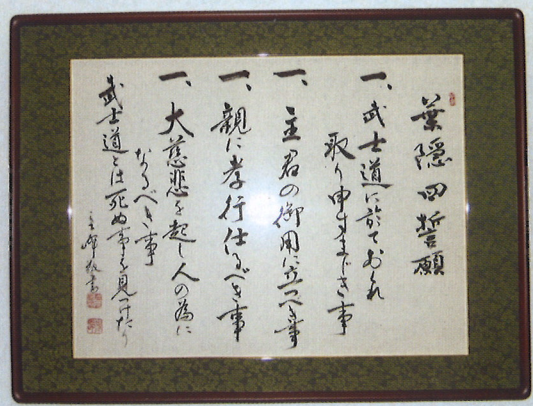 葉隠四誓願
一、武士道に於ておくれ
取り申すまじき事
一、主君の御用に立つべき事
一、親に孝行仕るべき事
一、大慈悲を起し人の為に
なるべき事
武士道とは死ぬ事と見つけたり